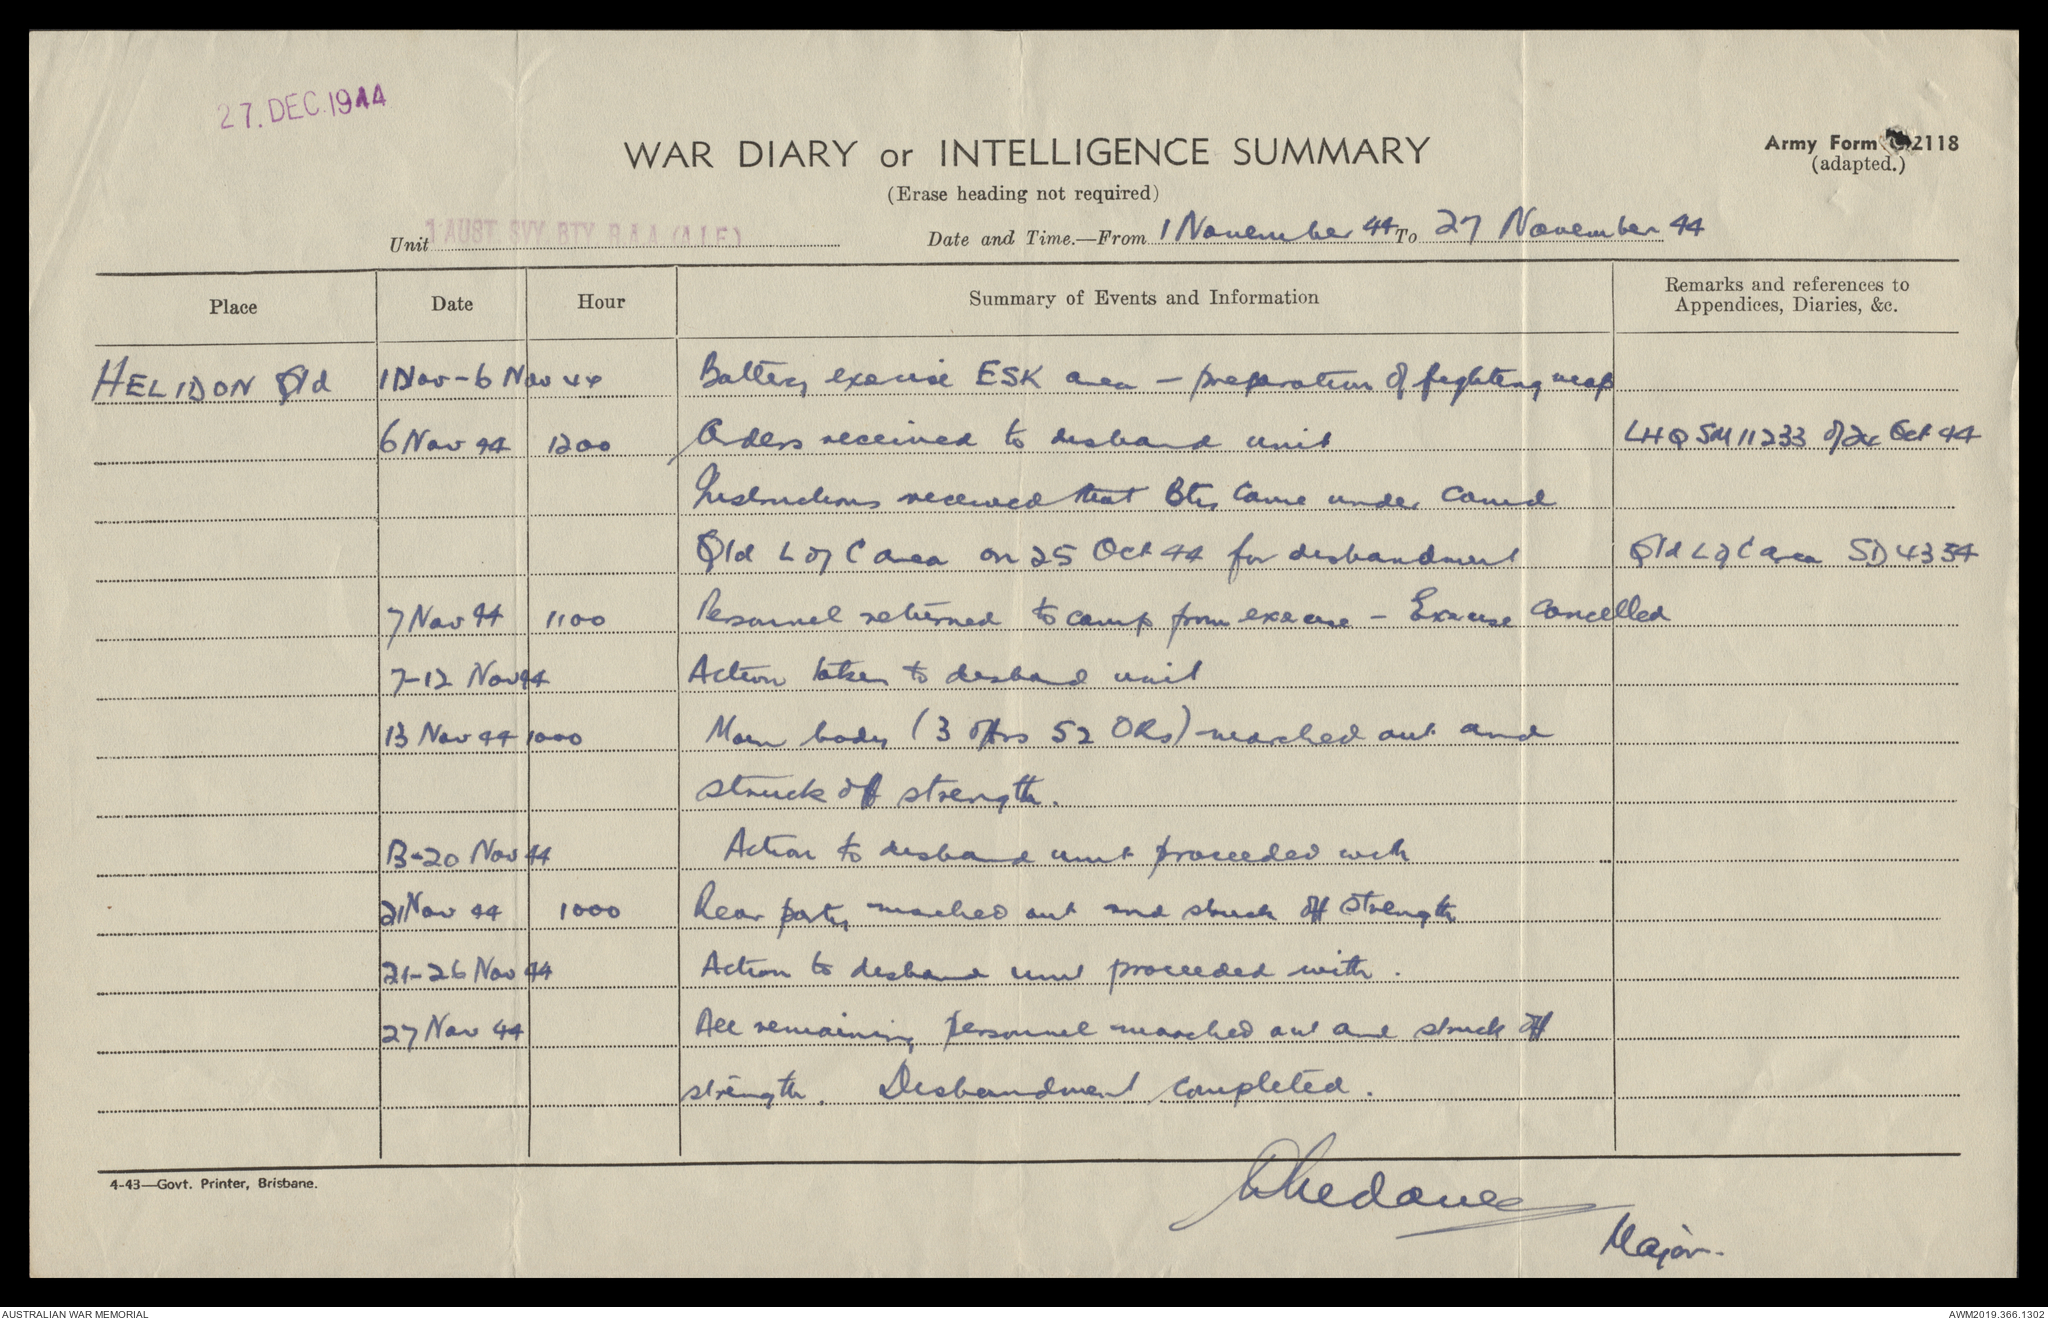 27. DEC. 1944
WAR DIARY or INTELLIGENCE SUMMARY
Army Form 2118
(adapted.)
(Erase heading not required)
Unit 1 AUST SVY BTY R.A.A. (A.I.F.) Date and Time.—From 1 November 44 To 27 November 44
Place Date Hour Summary of Events and Information Remarks and references to
Appendices, Diaries, &c.
HELIDON Qld 1 Nov - 6 Nov 44 Battery exercise ESK area - preparation of fighting maps
6 Nov 44 1200 Orders received to disband unit LHQ SM 11233 of 24 Oct 44
Instructions received that Bty came under comd
Qld L of C area on 25 Oct 44 for disbandment Qld L of C area SD 4354
7 Nov 44 1100 Personnel returned to camp from exercise - Exercise cancelled
7-12 Nov 44 Action taken to disband unit
13 Nov 44 1000 Main body (3 offrs 52 ORs) marched out and
struck off strength.
13-20 Nov 44 Action to disband unit proceeded with
21 Nov 44 1000 Rear party marched out and struck off strength
21-26 Nov 44 Action to disband unit proceeded with.
27 Nov 44 All remaining personnel marched out and struck off
strength. Disbandment completed.
4-43—Govt. Printer, Brisbane.
Major.
AUSTRALIAN WAR MEMORIAL
AWM2019.366.1302